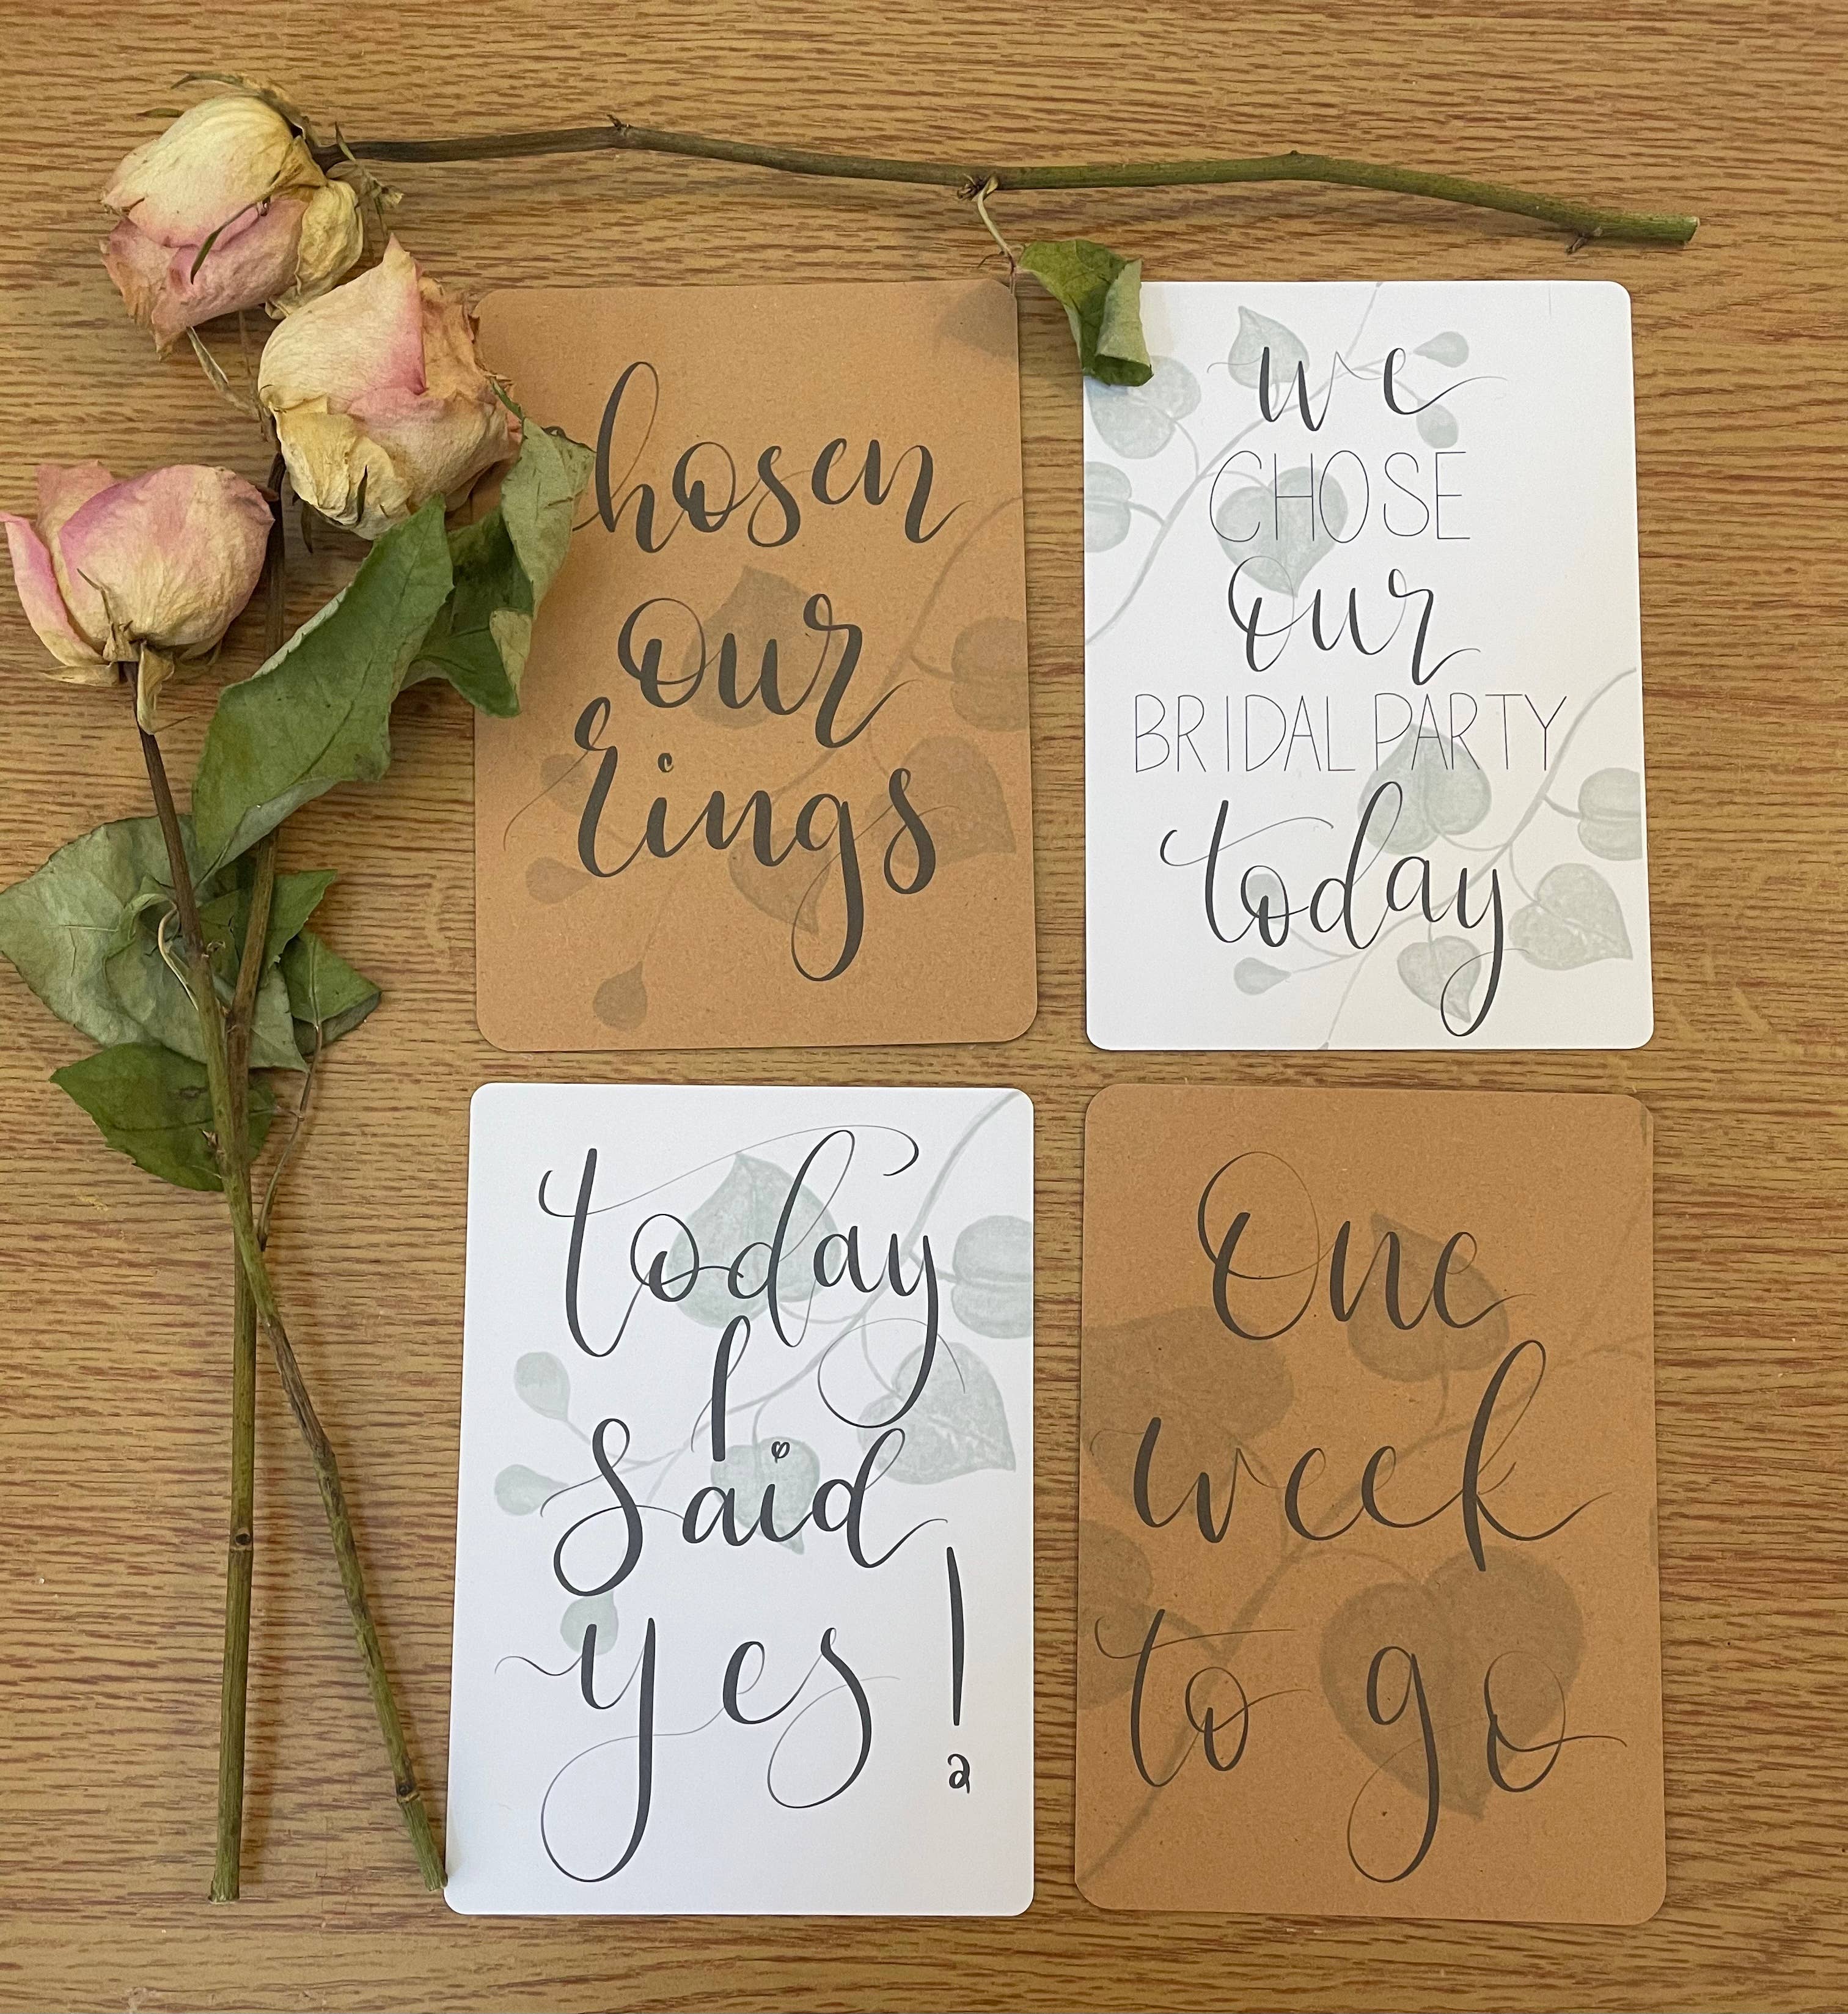 chosen
our
rings
we
CHOSE
our
BRIDAL PARTY
today
today
I
said
yes!
One
week
to go